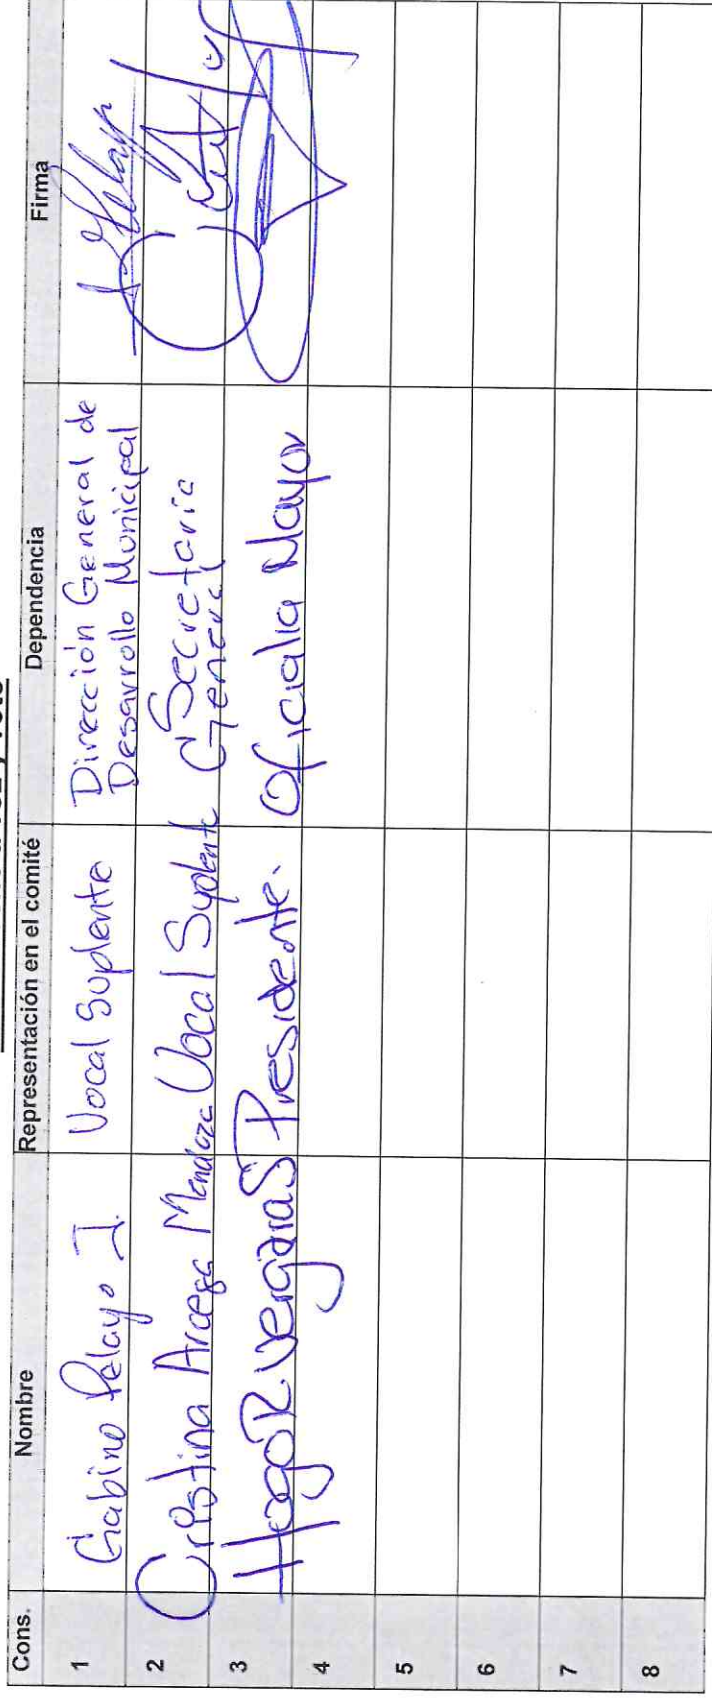 Cons. Nombre Representación en el comité Dependencia Firma
1 Gabino Pelayo J. Vocal Suplente Dirección General de
Desarrollo Municipal
2 Cristina Arcega Mendoza Vocal Suplente Secretaria
General
3 Hugo R. Vergara S Presidente. Oficialia Mayor
4
5
6
7
8